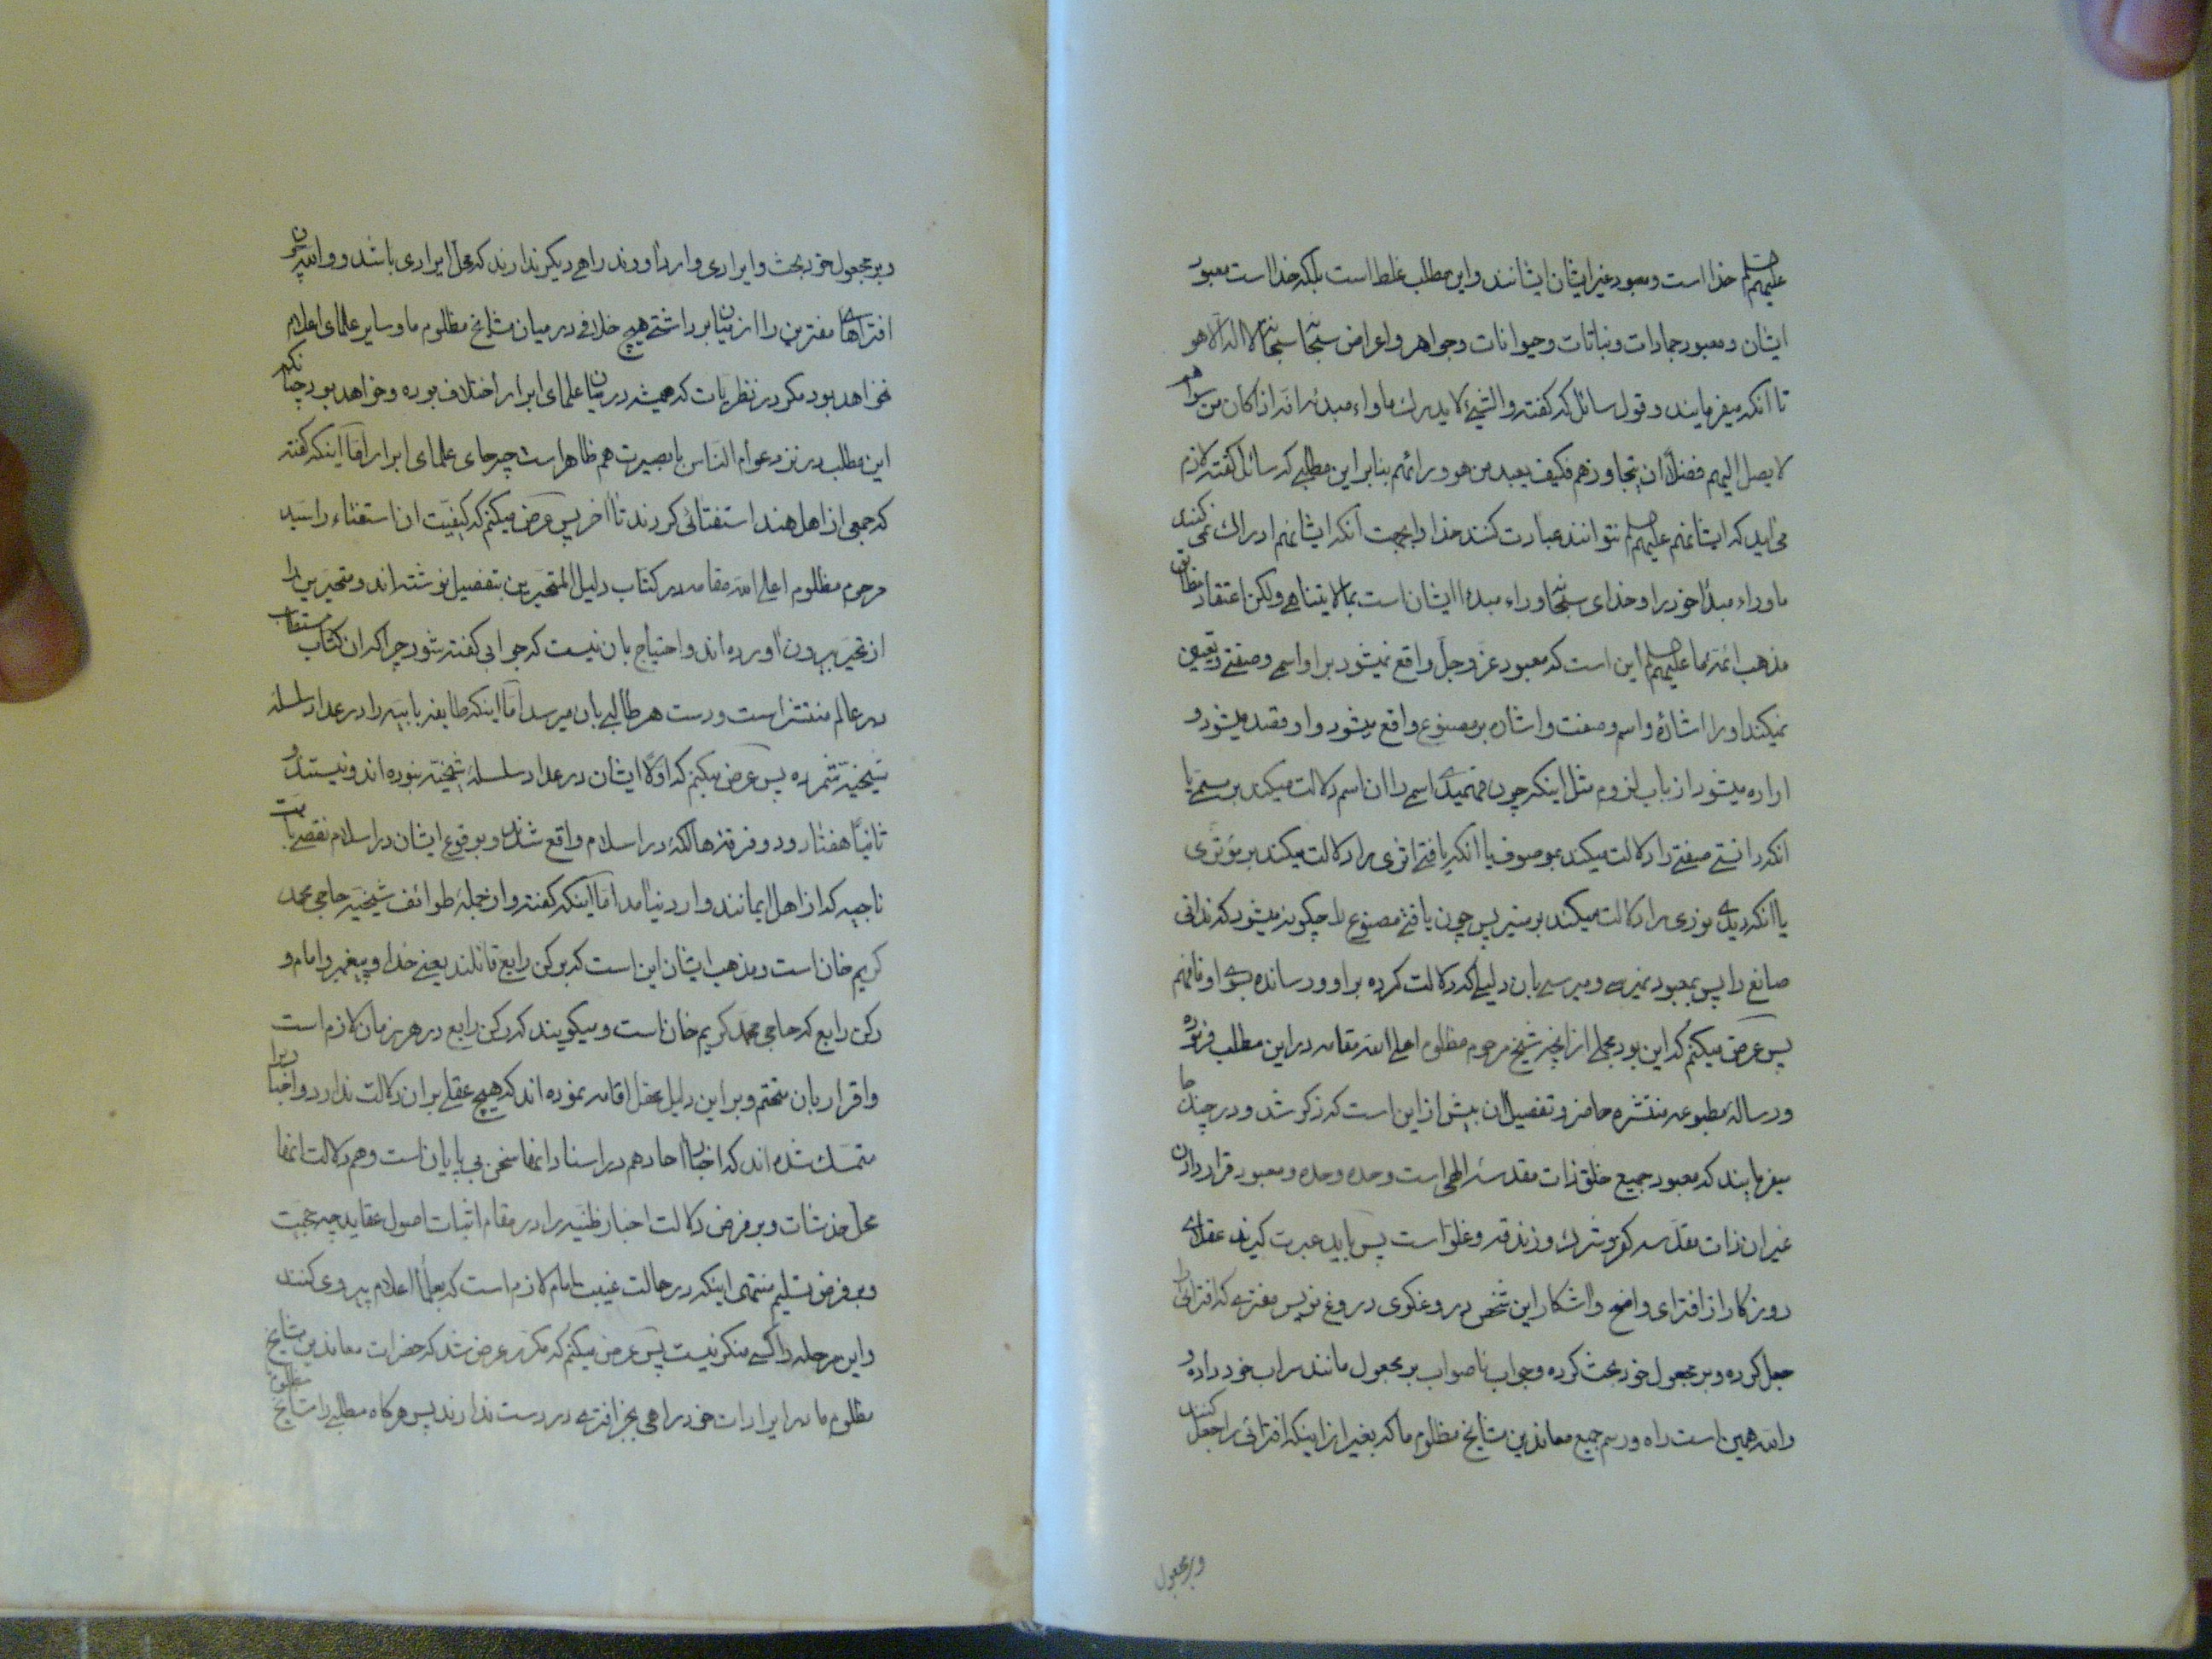 علیهم السلام خدا است و معبود غیر ایشان ایشانند و این مطلب غلط است بلکه خدا است معبود
ایشان و معبود جمادات و نباتات و حیوانات و جواهر و اعراض سبحانه سبحانه لا اله الا هو
تا آنکه میفرمایند و قول سائل که گفته و الشیء لا یدرک ما وراء مبدئه اذا کان من سواهم
لا یصل الیهم فضلاً ان یتجاوزهم فکیف یعبد من هو ورائهم بنابر این مطلبی که سائل گفته لازم
می‌آید که ایشانهم علیهم السلام نتوانند عبادت کنند خدا را بجهت آنکه ایشانهم ادراک نمی کنند
ماوراء مبدأ خود را و خدای سبحانه وراء مبدء ایشان است بما لا یتناهی ولکن اعتقاد مطابق
مذهب ائمه ما علیهم السلام این است که معبود عز و جل واقع نمیشود بر او اسمی و صفتی و تعیین
نمیکند او را اشاره و اسم و صفت و اشاره بر مصنوع واقع میشود و او قصد میشود و
اراده میشود از باب لزوم مثل اینکه چون فهمیدی اسمی را آن اسم دلالت میکند بر مسمی یا
آنکه دانستی صفتی را دلالت میکند بموصوف یا آنکه یافتی اثری را دلالت میکند بر مؤثری
یا آنکه دیدی نوری را دلالت میکند بر منیر پس چون یافتی مصنوع را چگونه میشود که ندانی
صانع را پس بمعبود نمیرسی و میرسی بآن دلیلی که دلالت کرده بر او و رسانده بسوی او فافهم
پس عرض میکنم که این بود مجملی از آنچه شیخ مرحوم مظلوم اعلی الله مقامه در این مطلب فرموده
و رساله مطبوعه منتشره حاضر و تفصیل آن بیش از این است که ذکر شد و در چند جا
میفرمایند که معبود جمیع خلق ذات مقدسه الهی است وحده وحده و معبود قرار دادن
غیر آن ذات مقدسه کفر و شرک و زندقه و غلو است پس باید عبرت گیرند عقلای
روزگار از افترای واضح و آشکار این شخص دروغگوی دروغ نویس مفتری که افترائی را
جعل کرده و بر مجعول خود بحث کرده و جواب ناصواب بر مجعول مانند سراب خود داده و
والله همین است راه و رسم جمیع معاندین مشایخ مظلوم ما که بغیر از اینکه افترائی را جعل کنند
و بر مجعول
و بر مجعول خود بحث و ایرادی وارد آورند راهی دیگر ندارند که محل ایرادی باشد و والله چون
افتراهای مفترین را از میان برداشتی هیچ خلافی در میان مشایخ مظلوم ما و سایر علمای اعلام
نخواهد بود مگر در نظریات که همیشه در میان علمای ابرار اختلاف بوده و خواهد بود چنانکه
این مطلب در نزد عوام الناس با بصیرت هم ظاهر است چه جای علمای ابرار اما اینکه گفته
که جمعی از اهل هند استفتائی کردند تا آخر پس عرض میکنم که کیفیت آن استفتاء را سید
مرحوم مظلوم اعلی الله مقامه در کتاب دلیل المتحیرین بتفصیل نوشته‌اند و متحیرین را
از تحیر بیرون آورده‌اند و احتیاج بآن نیست که جوابی گفته شود چرا که آن کتاب مستطاب
در عالم منتشر است و دست هر طالبی بآن میرسد اما اینکه طایفه بابیه را در عداد سلسله
شیخیه شمرده پس عرض میکنم که اولاً ایشان در عداد سلسله شیخیه نبوده‌اند و نیستند و
ثانیاً هفتاد و دو فرقه هالکه در اسلام واقع شدند و بوقوع ایشان در اسلام نقصی بملت
ناجیه که از اهل ایمانند وارد نیامد اما اینکه گفته و از جمله طوائف شیخیه حاجی محمد
کریم خان است و مذهب ایشان این است که برکن رابع قائلند یعنی خدا و پیغمبر و امام و
رکن رابع که حاجی محمد کریم خان است و میگویند که رکن رابع در هر زمان لازم است
و اقرار بآن متحتم و بر این دلیل عقل اقامه نموده‌اند که هیچ عقلی بر آن دلالت ندارد و اخبار را
متمسک شده‌اند که اخبار آحاد هم در اسناد آنها سخن بی پایان است و هم دلالت آنها
محل خدشات و بر فرض دلالت اخبار ظنیه را در مقام اثبات اصول عقاید چه حجیت
و بر فرض تسلیم منتهی اینکه در حالت غیبت امام لازم است که بعلماء اعلام پیروی کنند
و این مرحله را کسی منکر نیست پس عرض میکنم که مکرر عرض شد که حضرات معاندین مشایخ
مظلوم ما در ایرادات خود راهی بجز افتری در دست ندارند پس هر گاه مطلبی را مشایخ مظلوم